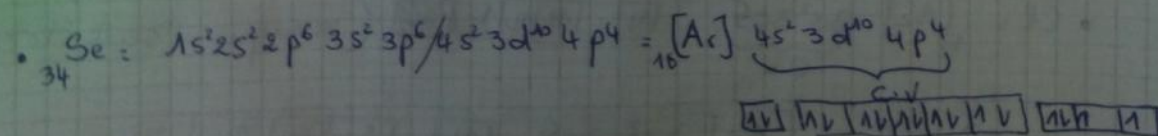 • ₃₄Se : 1s²2s²2p⁶ 3s² 3p⁶/4s² 3d¹⁰ 4p⁴ = ₁₈[Ar] 4s² 3d¹⁰ 4p⁴
C.V